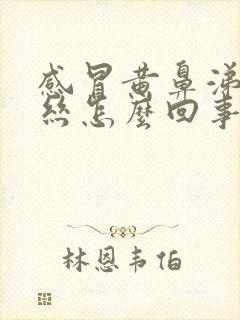 感冒黄鼻涕
丝怎么回事
林恩韦伯